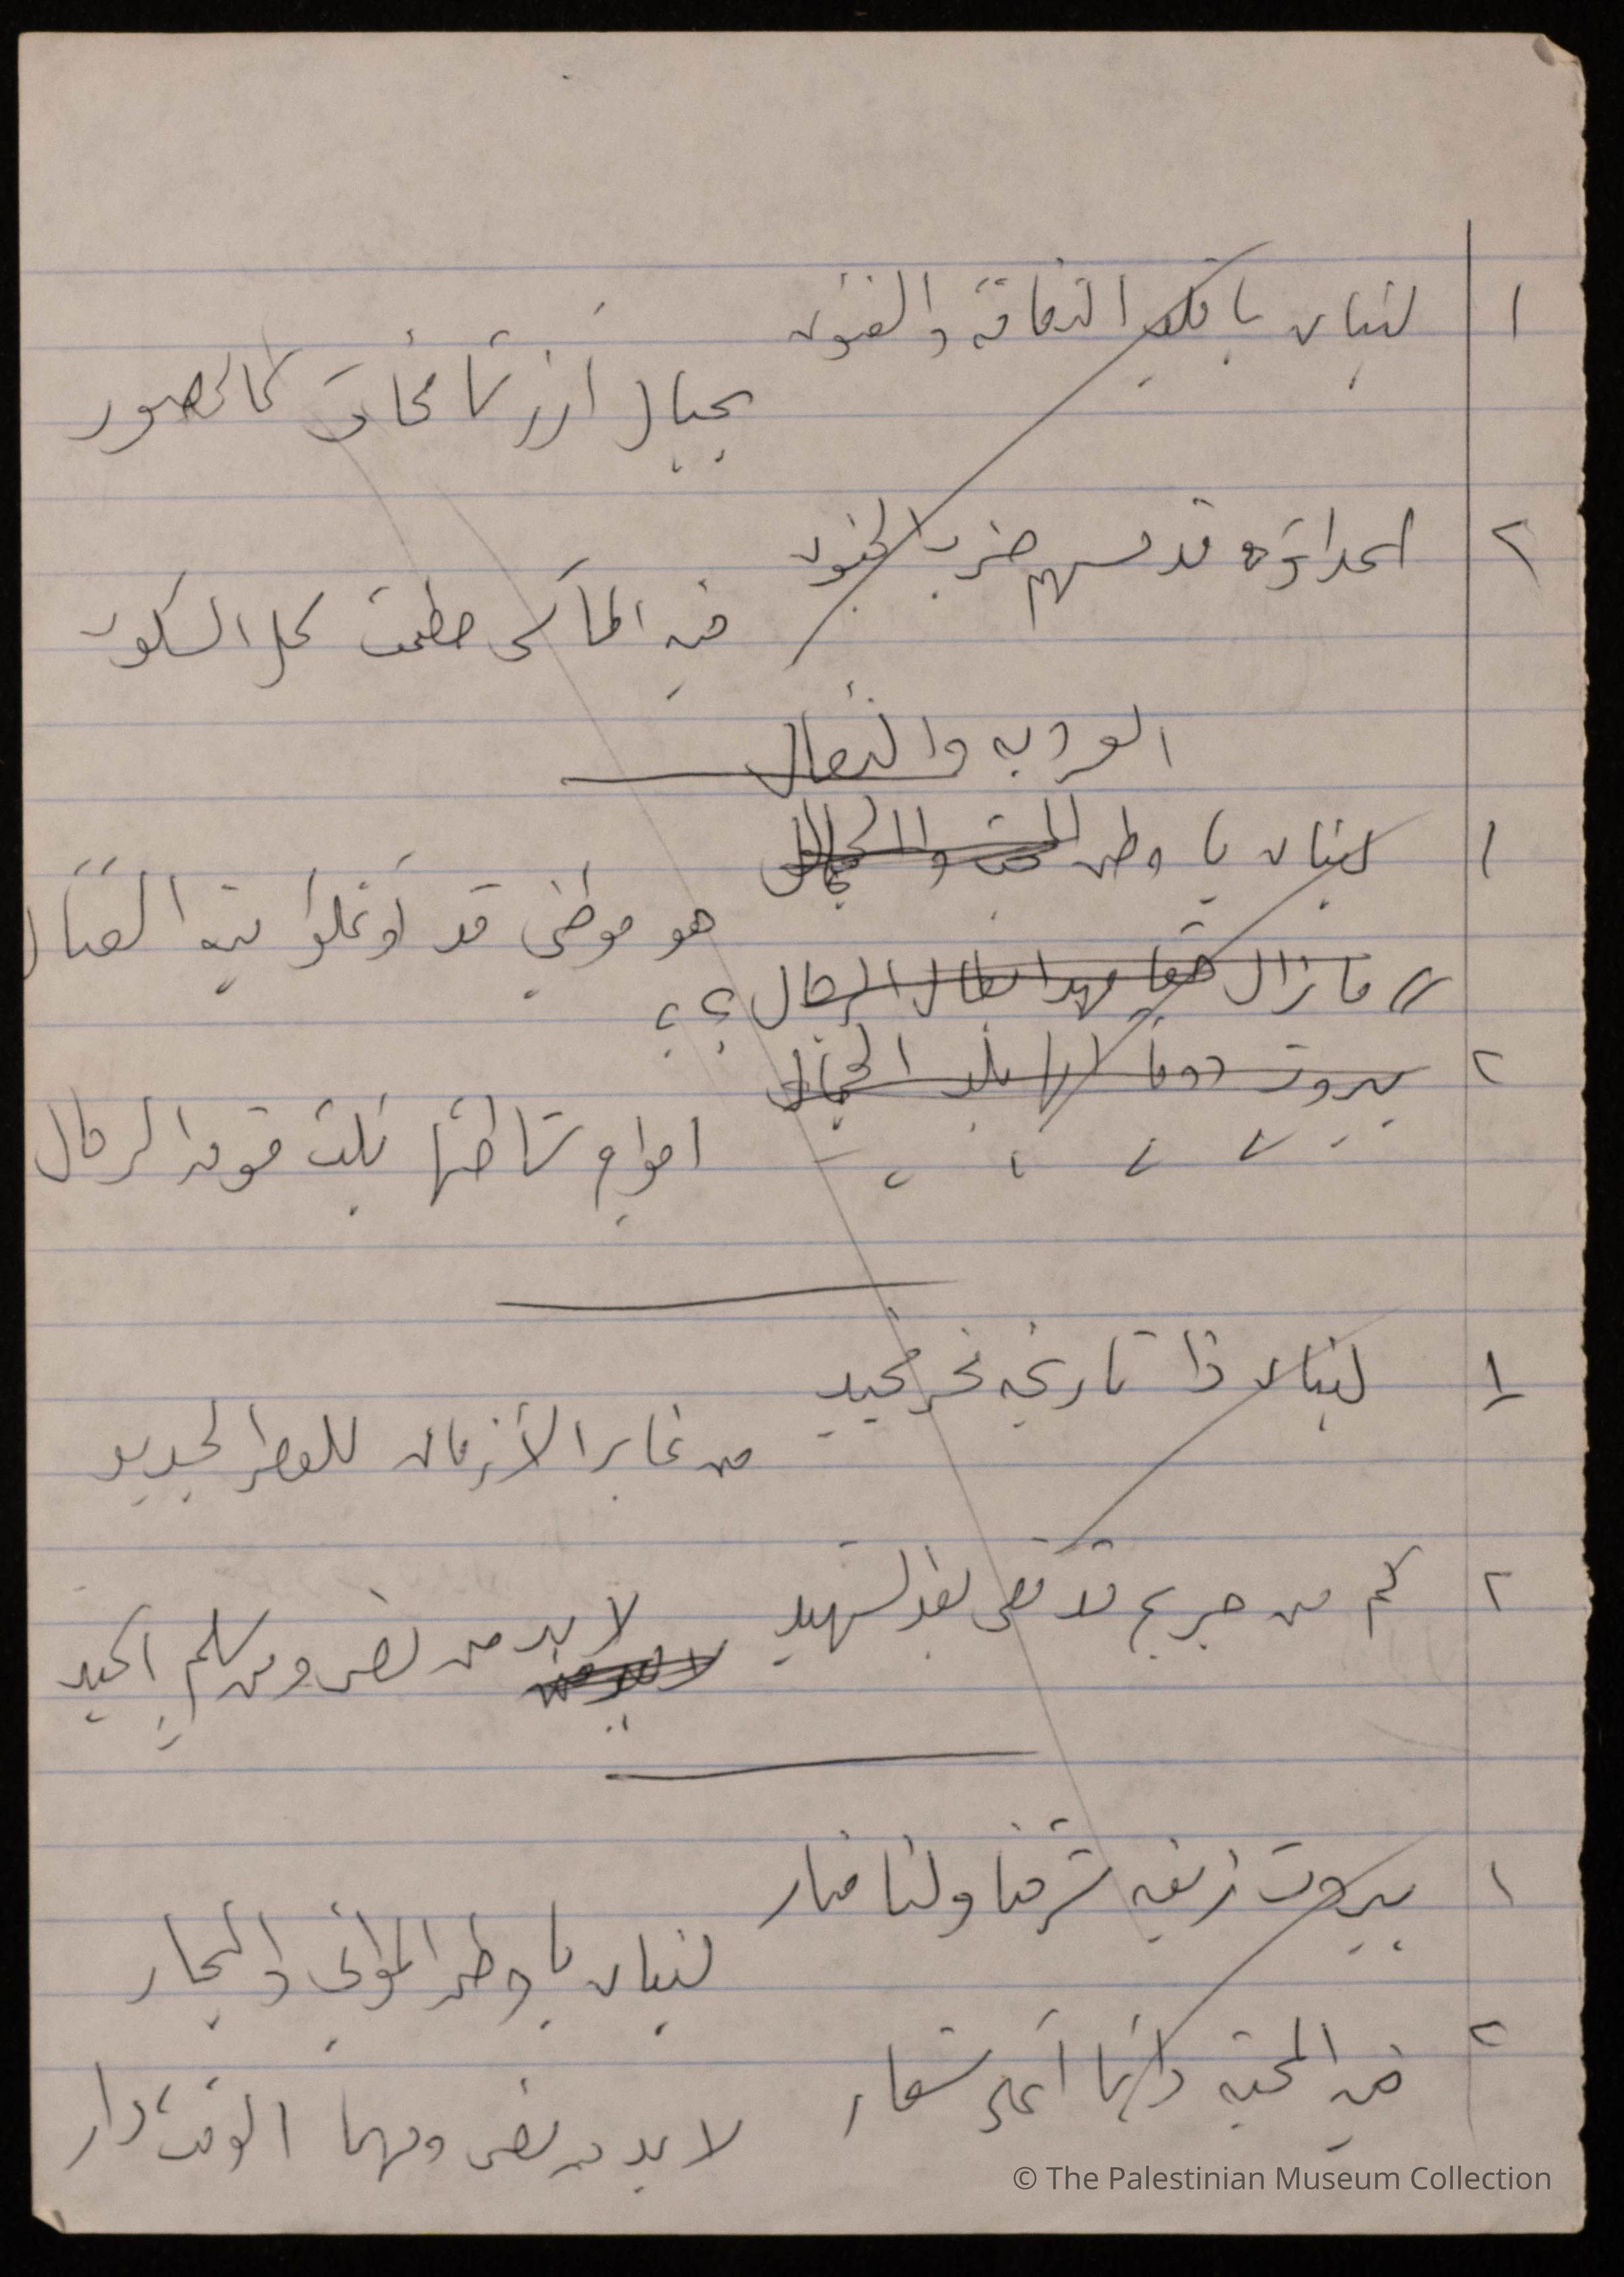 ١ لبنان يا بلد الثقافة والفنون
بجبال أرز شامخات كالحصور
٢ اعداؤه قد مسهم ضرب الجنون
فيه المآسي حطمت كل السكون
العروبه والنضال
١ لبنان يا وطن المحبة والجمال
هو موطني قد أوغلوا فيه القتال
// ما زال حقا مهد ابطال الرجال ؟ ؟
٢ بيروت دوما انها بلد الجمال
امواج شاطئها بكت فوق الرمال
١ لبنان ذا تاريخه فخر مجيد
من غابر الأزمان للعصر الجديد
٢ كم من جريح قد قضى بعد الشهيد
لا بد من نصر ومن سلم اكيد
١ بيروت زينة شرقنا ولنا منار
لبنان يا وطن الموانئ والبحار
٢ فيه المحبة دائما أعلى شعار
لا بد من نصر ومهما الوقت دار
© The Palestinian Museum Collection